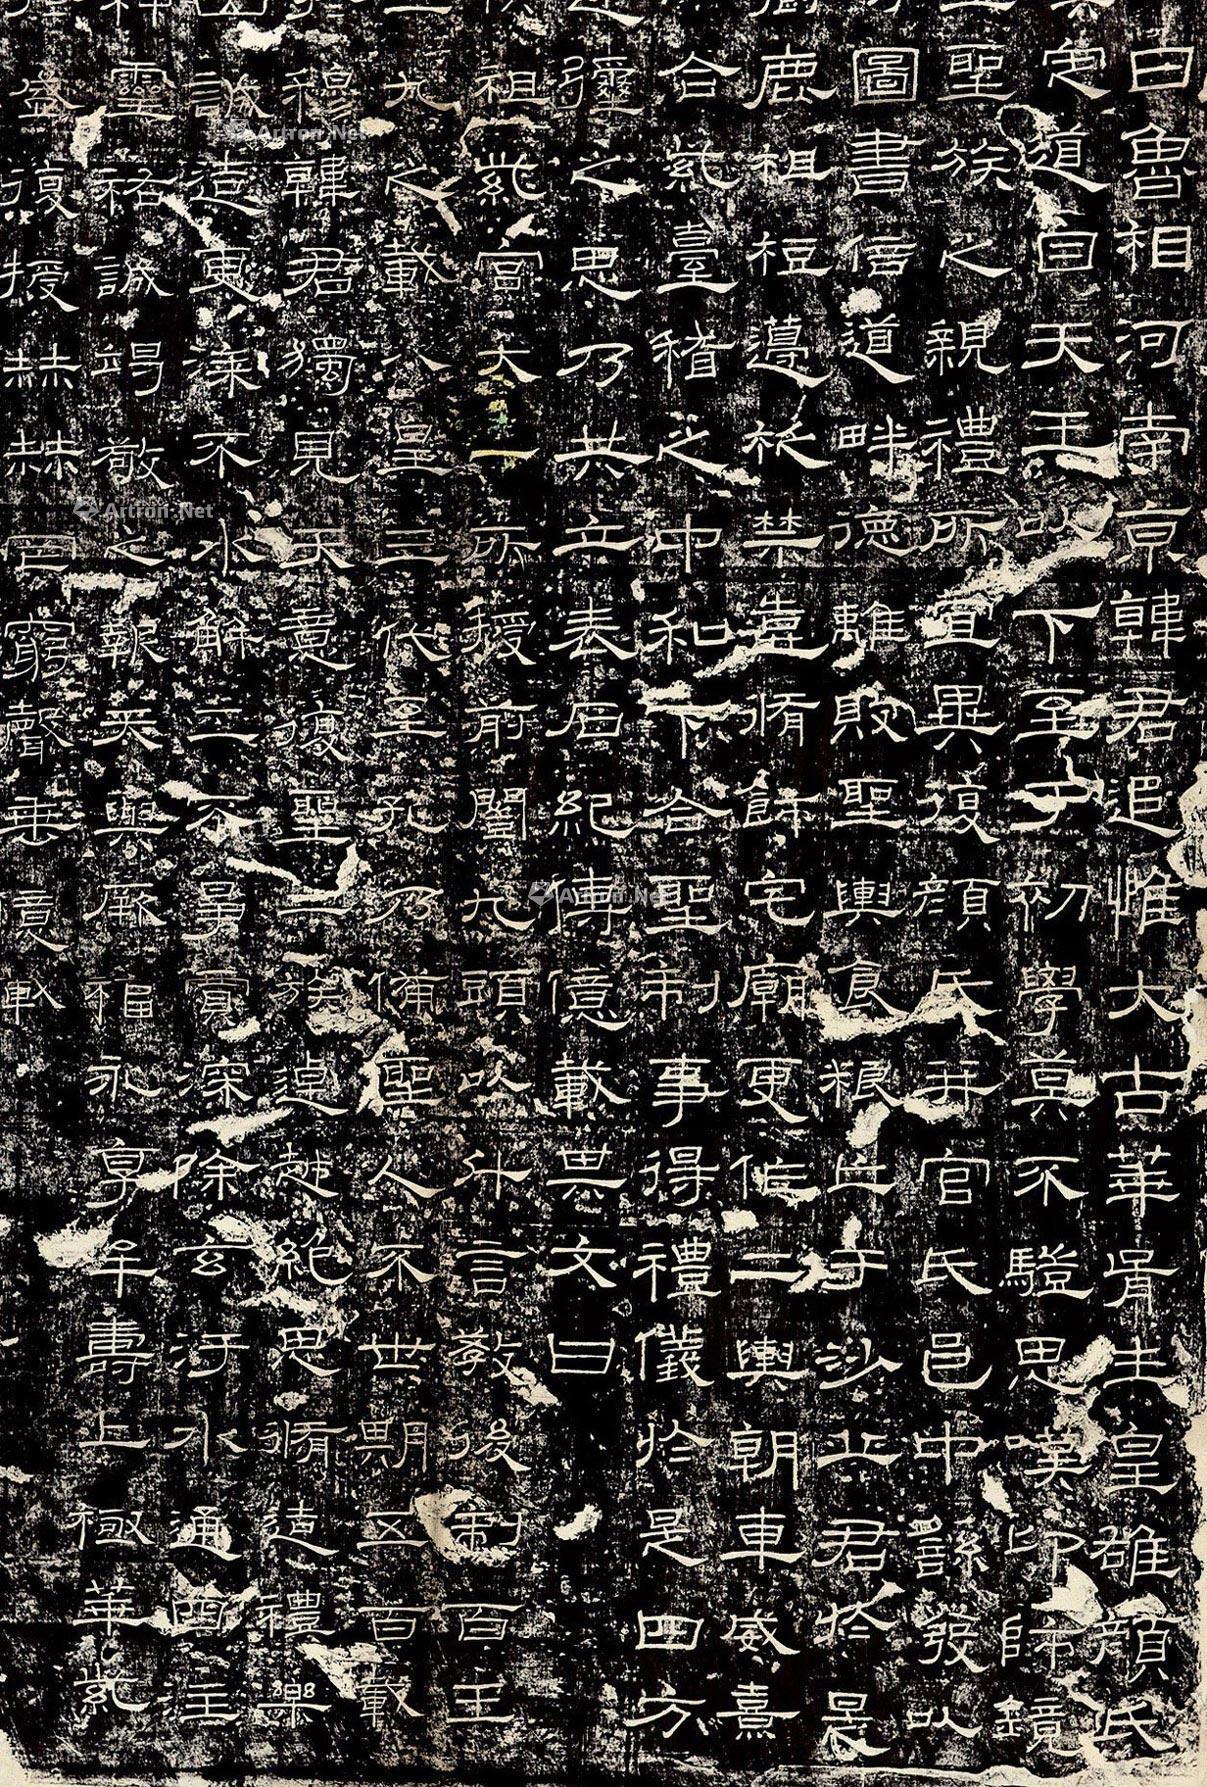 日魯相河南京韓君追惟大古華胥生皇雄顏氏
定道自天王以下至于初學莫不驥思嘆卬師鏡
聖族之親禮所宜異復顏氏并官氏邑中繇發以
圖書倍道畔德離敗聖輿食糧亡于沙丘君於是
鹿柤梪籩柉禁壺脩飾宅廟更作二輿朝車威熹
合紫臺稽之中和下合聖制事得禮儀於是四方
彌之思乃共立表石紀傳億載其文曰
祖紫宮大一所授前闓九頭以斗言教後制百王
九之載八皇三代至孔乃備聖人不世期五百載
穆韓君獨見天意復聖二族逴越絕思脩造禮樂
誠造更漆不水解工不爭賈深除玄汙水通四注
靈祐誠竭敬之報天與厥福永享牟壽上極華紫
盛復授赫赫罔窮聲垂億載
Artron.Net
Artron.Net
Artron.Net